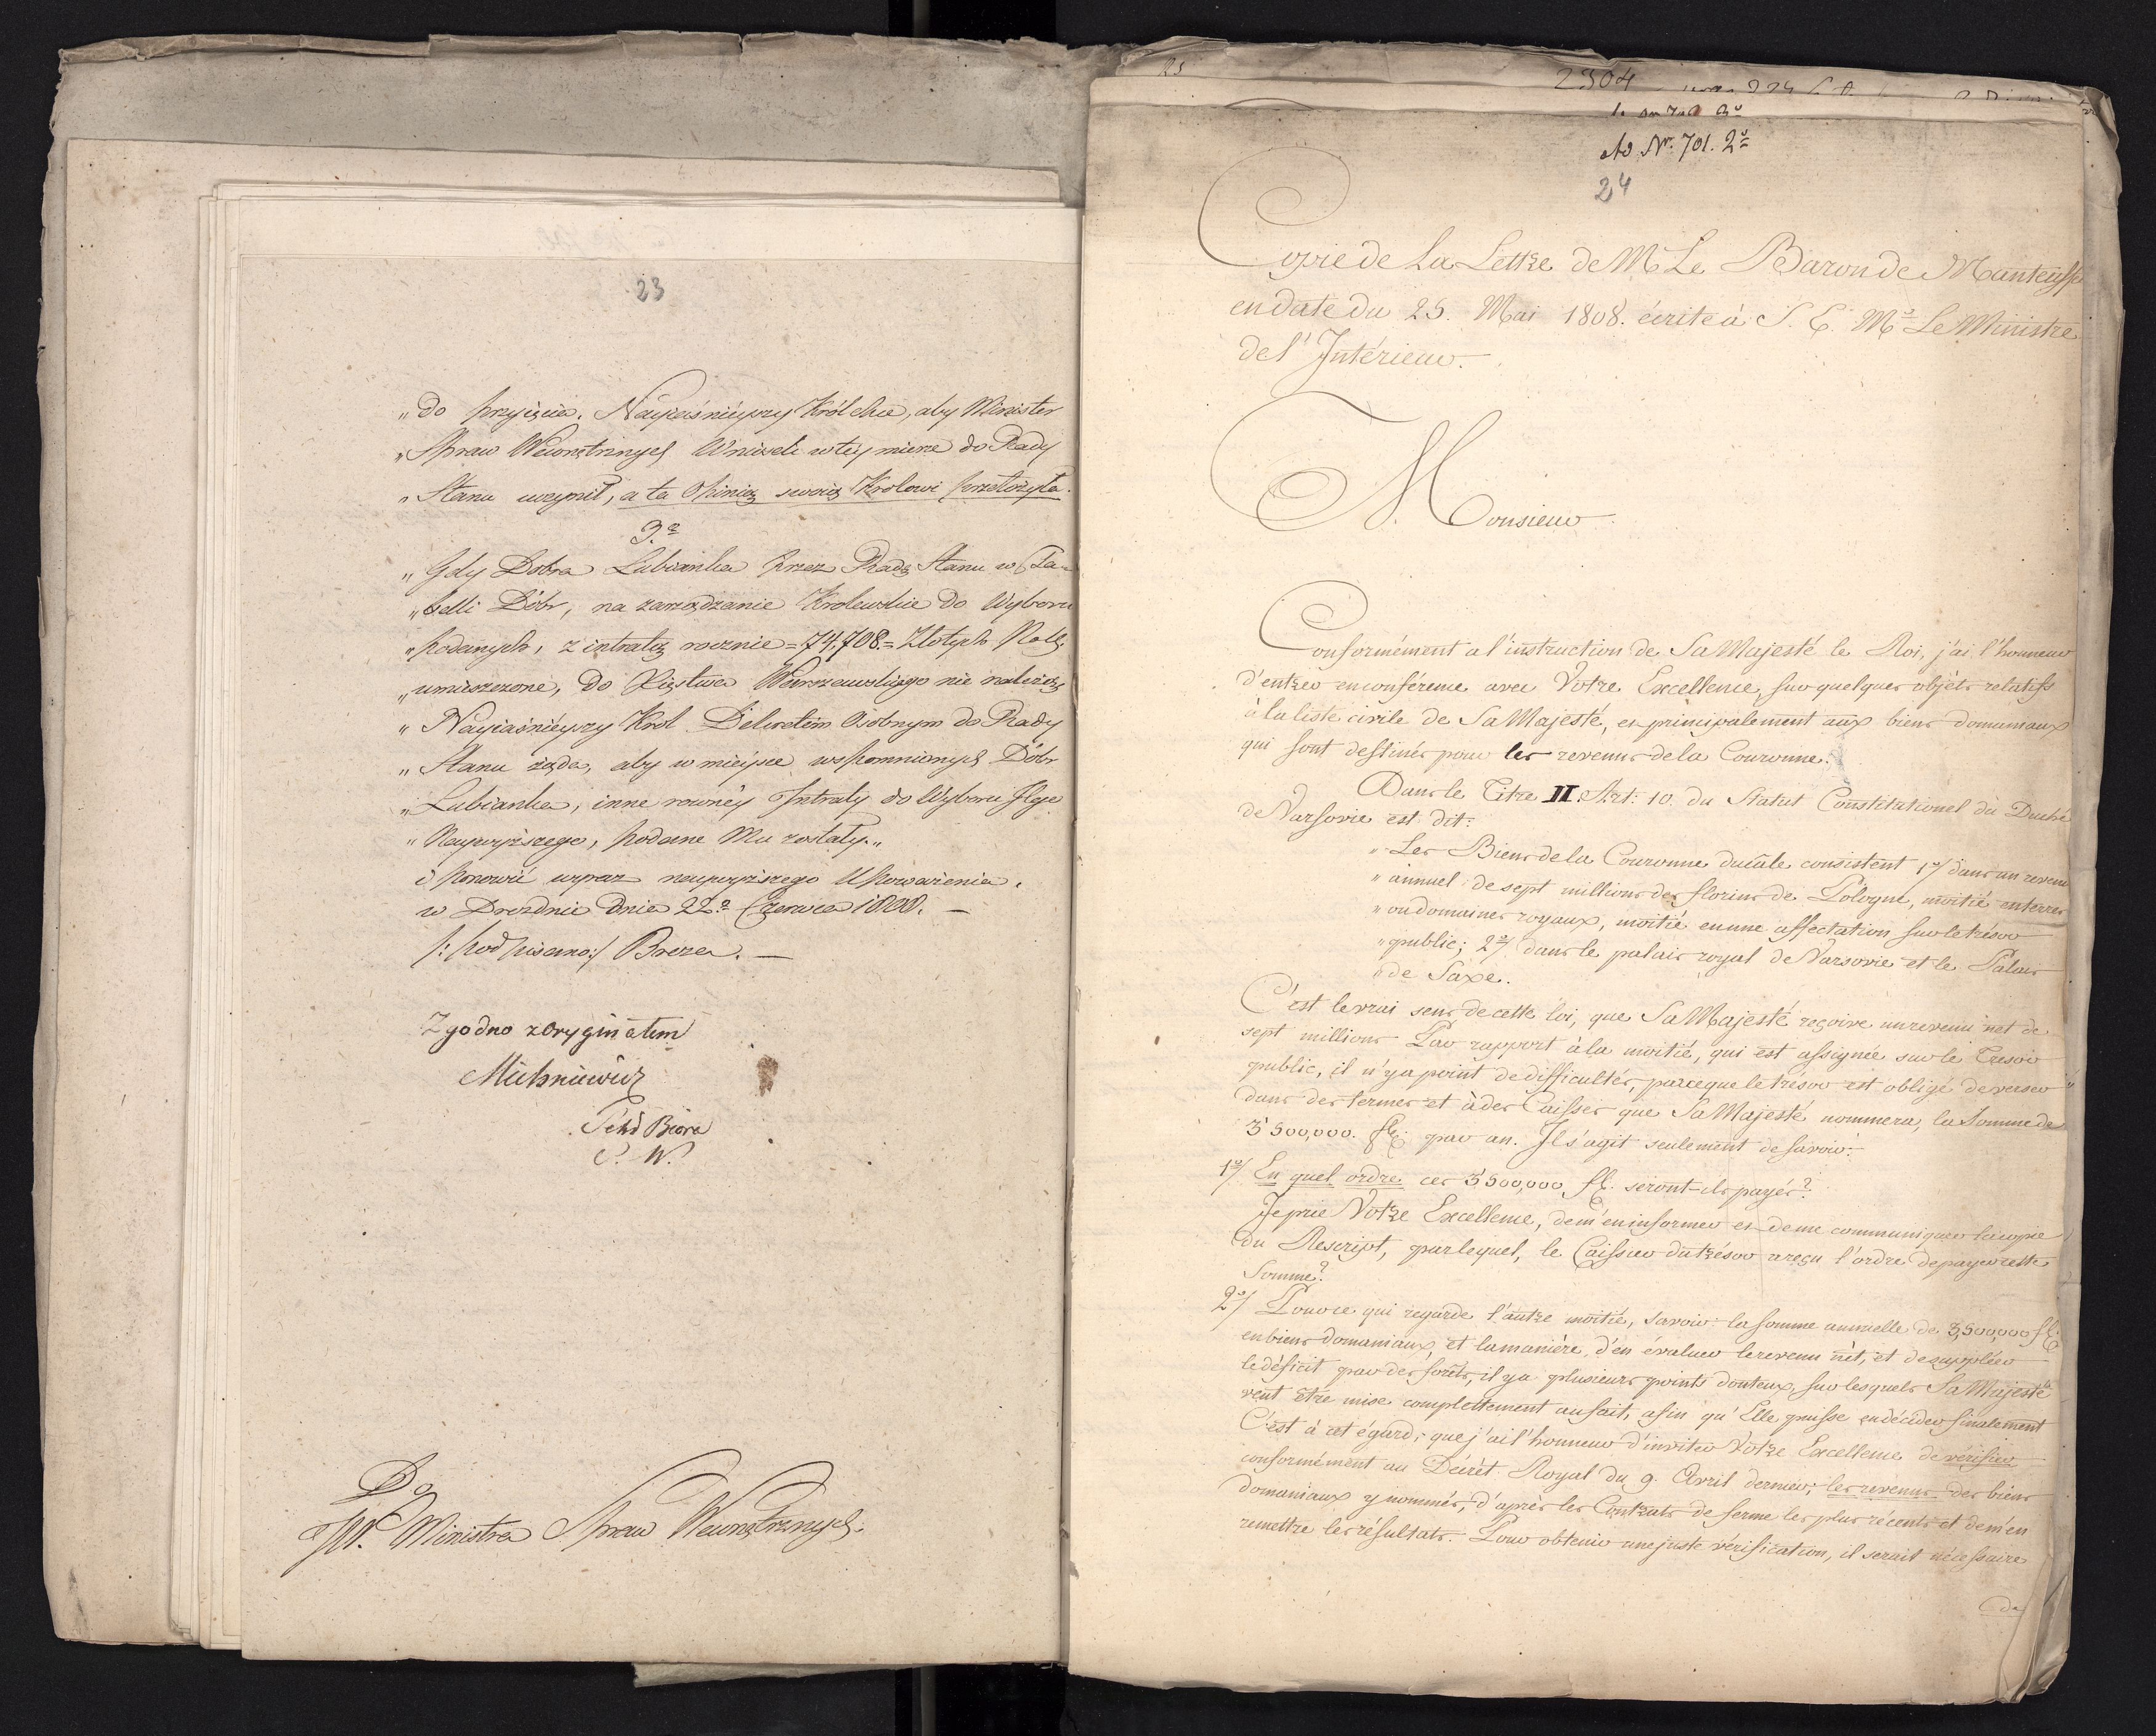 23
„do przyięcia. Nayiaśnieyszy Król chce, aby Minister
„Spraw Wewnętrznych Wniosek w tey mierze do Rady
„Stanu uczynił, a ta Opinią swoią Krolowi przełożyła.
3.º
„Gdy Dobra Lubianka przez Radę Stanu w Ta-
„belli Dóbr, na zarządzanie Krolewskie do Wyboru
„podanych, z intratą rocznie =74,708.= Złotych Polk.
„umieszczone, do Xięstwa Warszawskiego nie należą,
„Nayiaśnieyszy Krol Dekretem Osobnym do Rady
„Stanu żąda, aby w mieysce wspomnionych Dóbr
„Lubianka, inne rowney Intraty do Wyboru Jego
„Naywyższego, podane Mu zostały.„
i ponowić wyraz naywyższego Uszanowania.
w Dreznie dnia 22.º Czerwca 1808. —
/: podpisano :/ Breza. —
Zgodno z oryginałem
Michniewicz
Sekr Biora
S. W.
Do
JW. Ministra Spraw Wewnętrznych.
25
2304
Ad Nr. 701. 2º
24
Copie de La Lettre de Mr Le Baron de Manteuffel
en date du 25. Mai 1808. écrite à S. E. Mr Le Ministre
de l'Intérieur.
Monsieur
Conformément a l'instruction de Sa Majesté le Roi, j'ai l'honneur
d'entrer en conférence avec Votre Excellence, sur quelques objèts relatifs
à la liste civile de Sa Majesté, et principalement aux biens domaniaux
qui sont destinés pour les revenus de la Couronne.
Dans le Titre II. Art: 10. du Statut Constitutionel du Duché
de Varsovie est dit:
„Les Biens de la Couronne ducâle consistent 1º/ dans un revenu
„annuel de sept millions des florins de Pologne, moitié en terres
„ou domaines royaux, moitié en une affectation sur le trésor
„public; 2º/ dans le palais royal de Varsovie et le Palais
„de Saxe.
C'est le vrai sens de cette loi, que Sa Majesté reçoive un revenu net de
sept millions Par rapport à la moitié, qui est assignée sur le Tresor
public, il n'y a point de difficultés, parceque le trésor est obligé de verser
dans des termes et à des Caisses que Sa Majesté nommera, la Somme de
3'500,000. fl. par an. Il s'agit seulement de savoir:
1º/ En quel ordre ces 3'500,000 fl. seront-ils payés?
Je prie Votre Excellence, de m'en informer et de me communiquer la copie
du Rescript, par lequel, le Caissier du trésor a reçu l'ordre de payer cette
Somme?
2º/ Pour ce qui regarde l'autre moitié, savoir: la somme annuelle de 3,500,000 fl.
en biens domaniaux, et la manière, d'en évaluer le revenu nèt, et de suppléer
le déficit par des forêts, il y a plusieurs points douteux, sur lesquels Sa Majesté
veut être mise complettement au fait, afin qu'Elle puisse en décider finalement
C'est à cet égard, que j'ai l'honneur d'inviter Votre Excellence de vérifier
conformément au Décrèt Royal du 9. Avril dernier, les revenus des biens
domaniaux y nommés, d'après les Contrats de ferme les plus récents et de m'en
remettre les résultats. Pour obtenir une juste vérification, il serait nécessaire
de